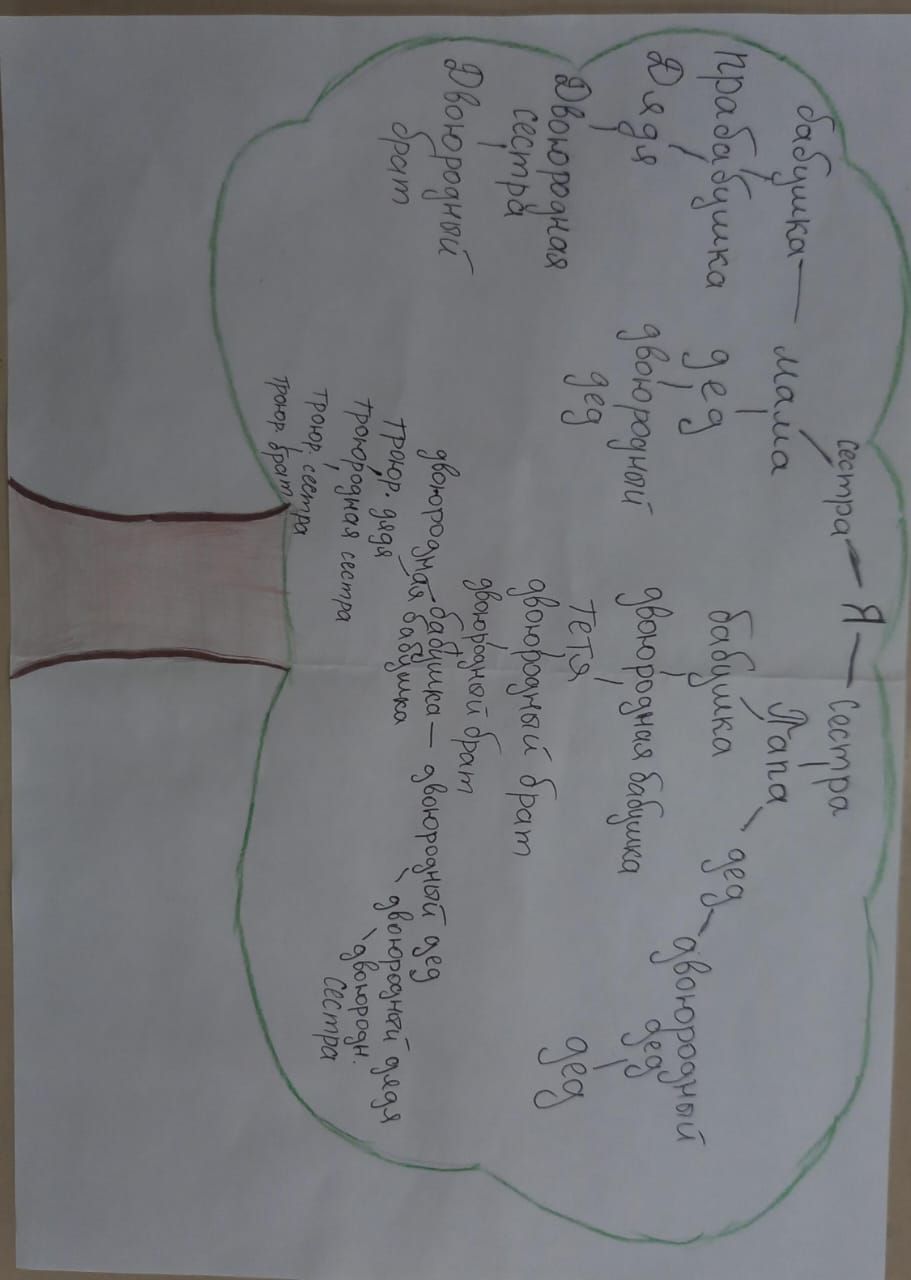 сестра — Я — сестра
бабушка — мама
Папа
прабабушка
дед
бабушка
дед — двоюродный
дед
Дядя
двоюродный
дед
двоюродная бабушка
дед
Двоюродная
сестра
тетя
двоюродный брат
Двоюродный
брат
двоюродной брат
бабушка — двоюродный дед
двоюродная бабушка
двоюродный дядя
троюр. дядя
двоюродн.
сестра
троюродная сестра
троюр. сестра
троюр. брат